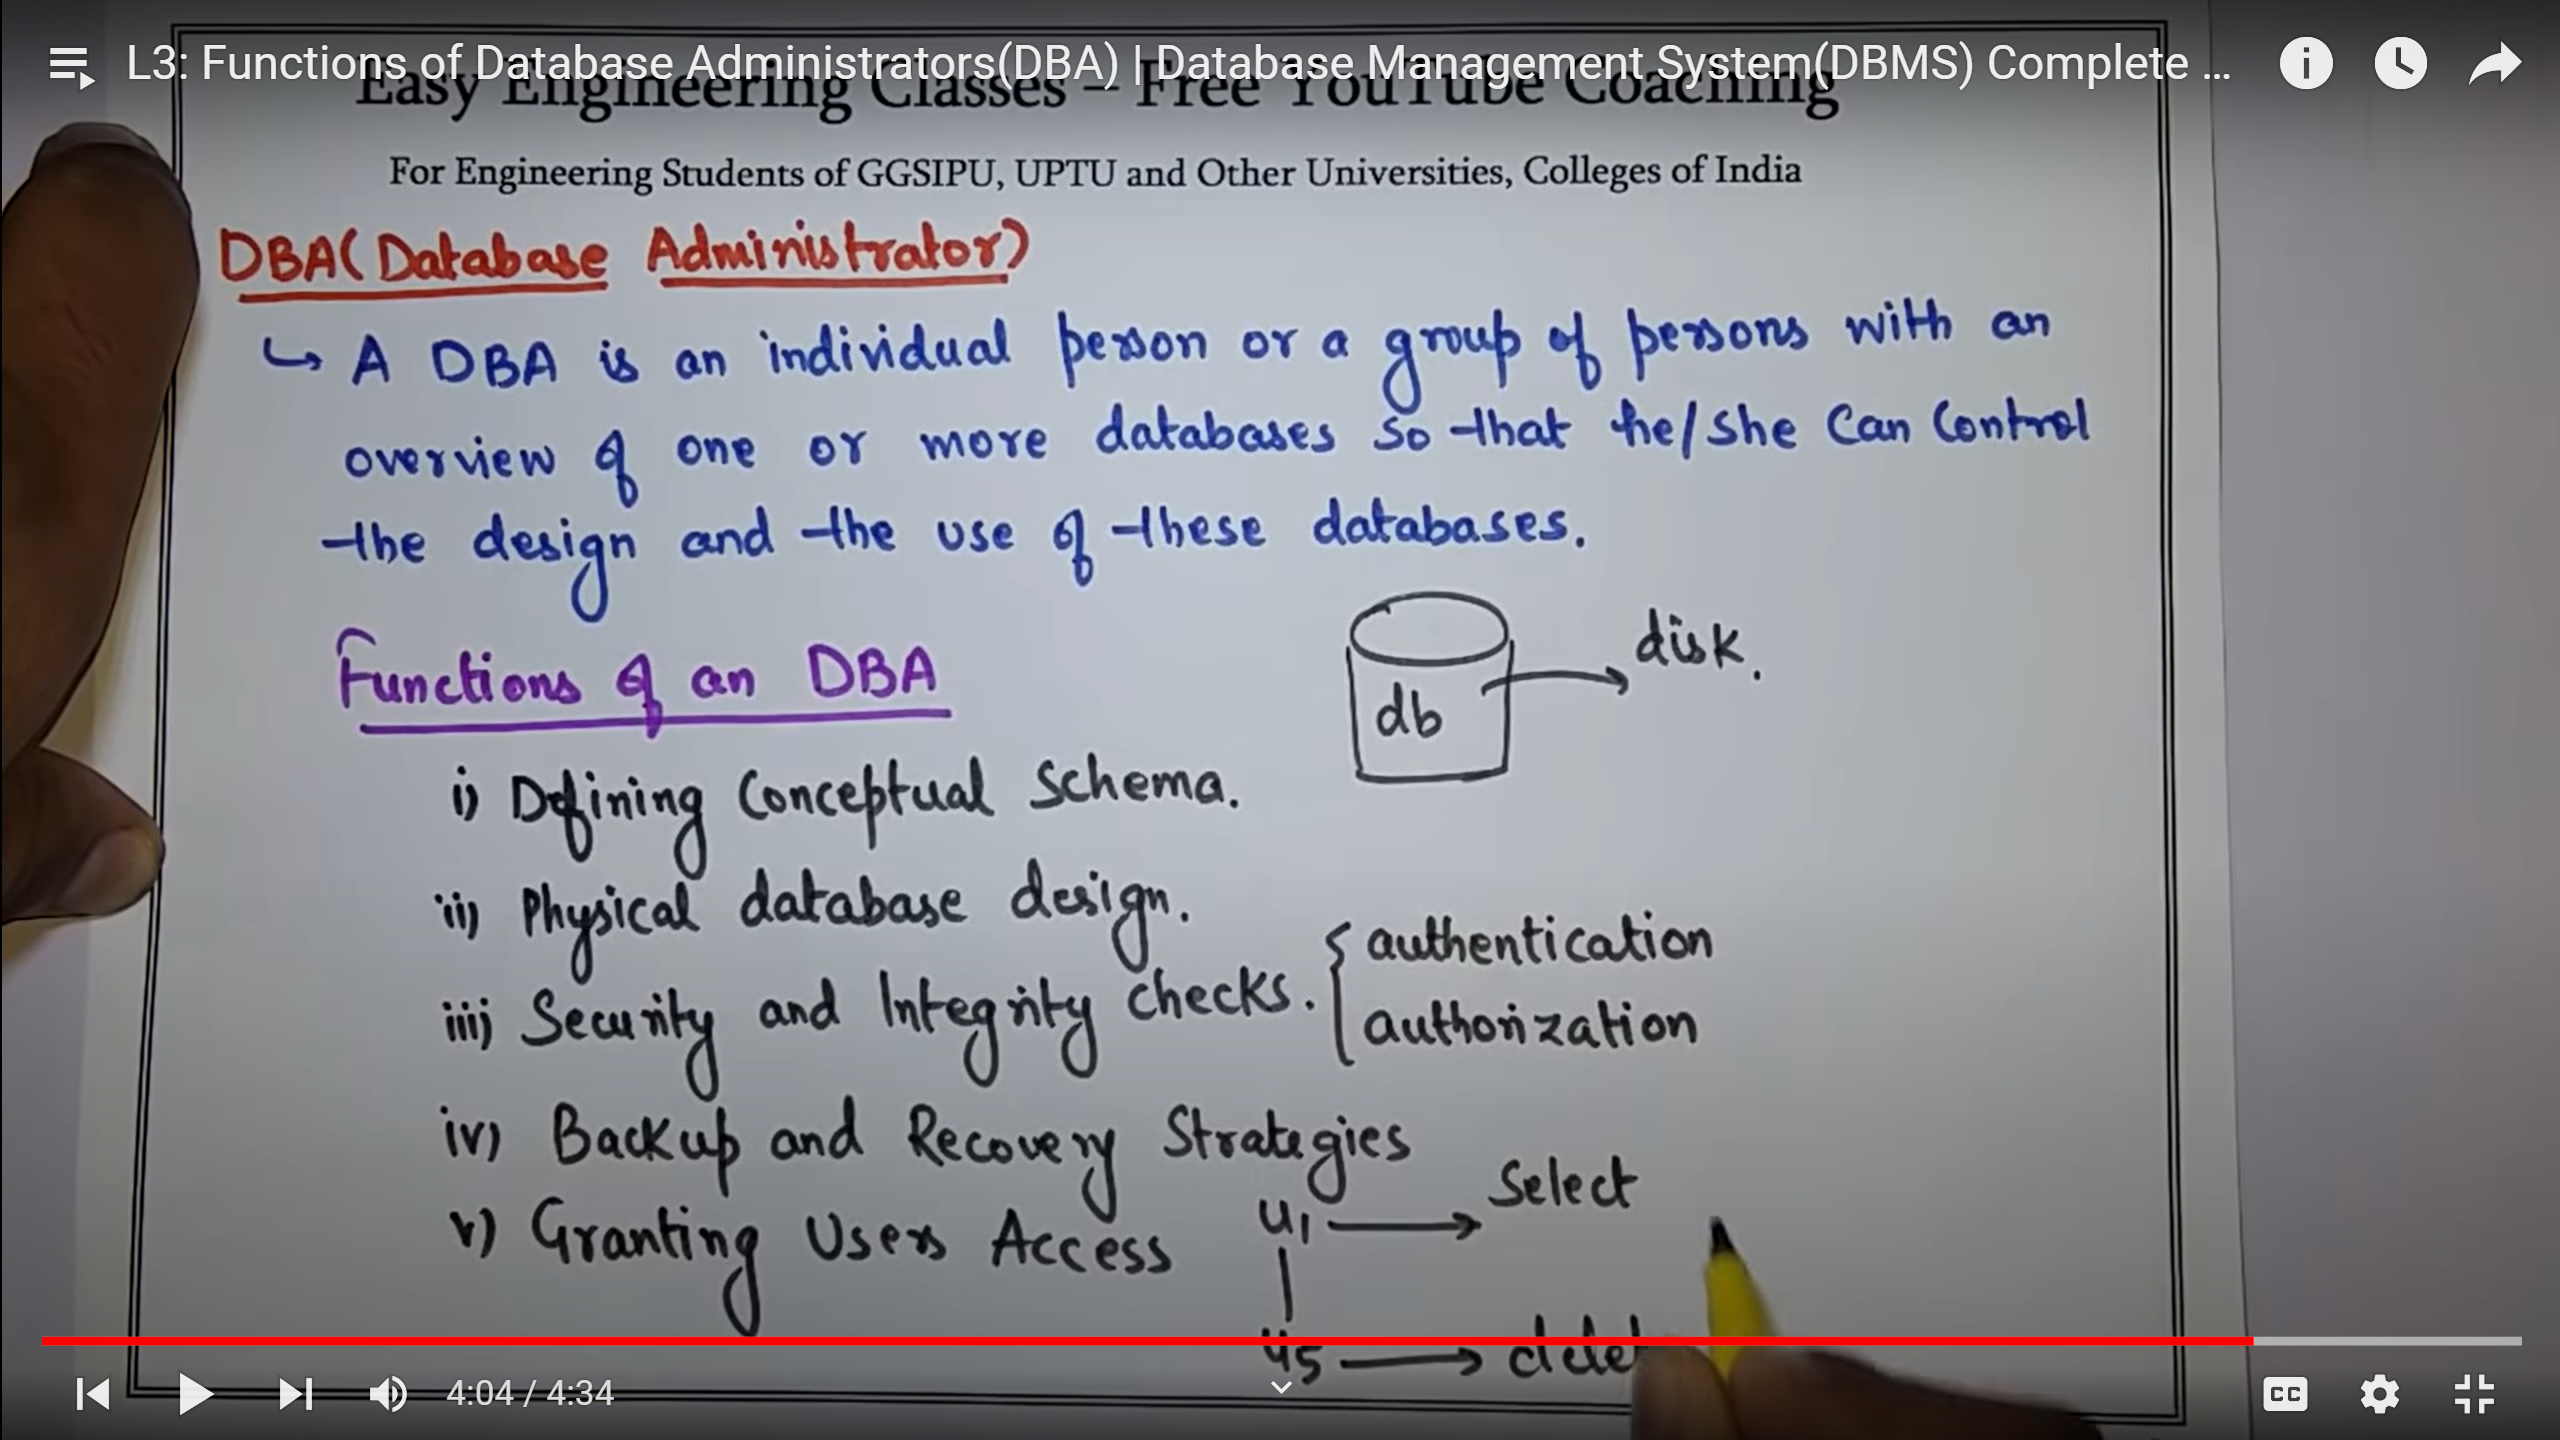 L3: Functions of Database Administrators(DBA) | Database Management System(DBMS) Complete ...
Easy Engineering Classes – Free YouTube Coaching
For Engineering Students of GGSIPU, UPTU and Other Universities, Colleges of India
DBA (Database Administrator)
↳ A DBA is an individual person or a group of persons with an
overview of one or more databases so that he/she can control
the design and the use of these databases.
Functions of an DBA
db → disk.
i) Defining Conceptual Schema.
ii) Physical database design.
iii) Security and Integrity checks. { authentication
authorization
iv) Backup and Recovery Strategies
v) Granting Users Access
u1 → Select
u5 →
4:04 / 4:34
CC